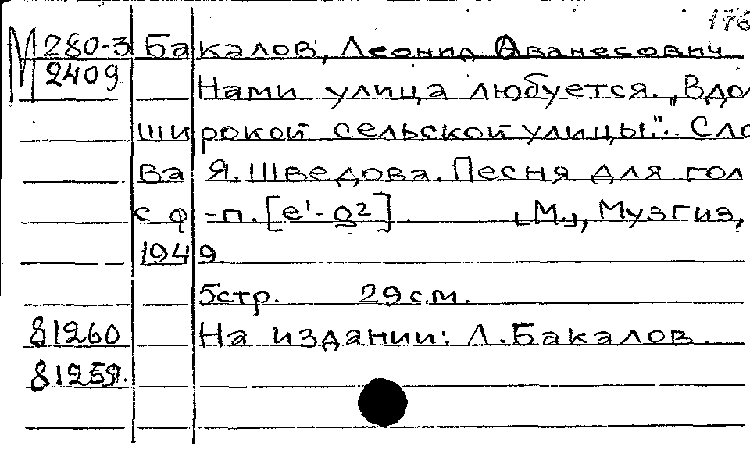 176
М 280-3 Бакалов, Леонид Аванесович
2409 Нами улица любуется. „Вдо
широкой сельской улицы.". Сло
ва Я. Шведова. Песня для гол
с ф-п. [e¹-g²] „М.", Музгиз,
1949
5стр. 29см.
81260 На издании: Л. Бакалов.
81259.